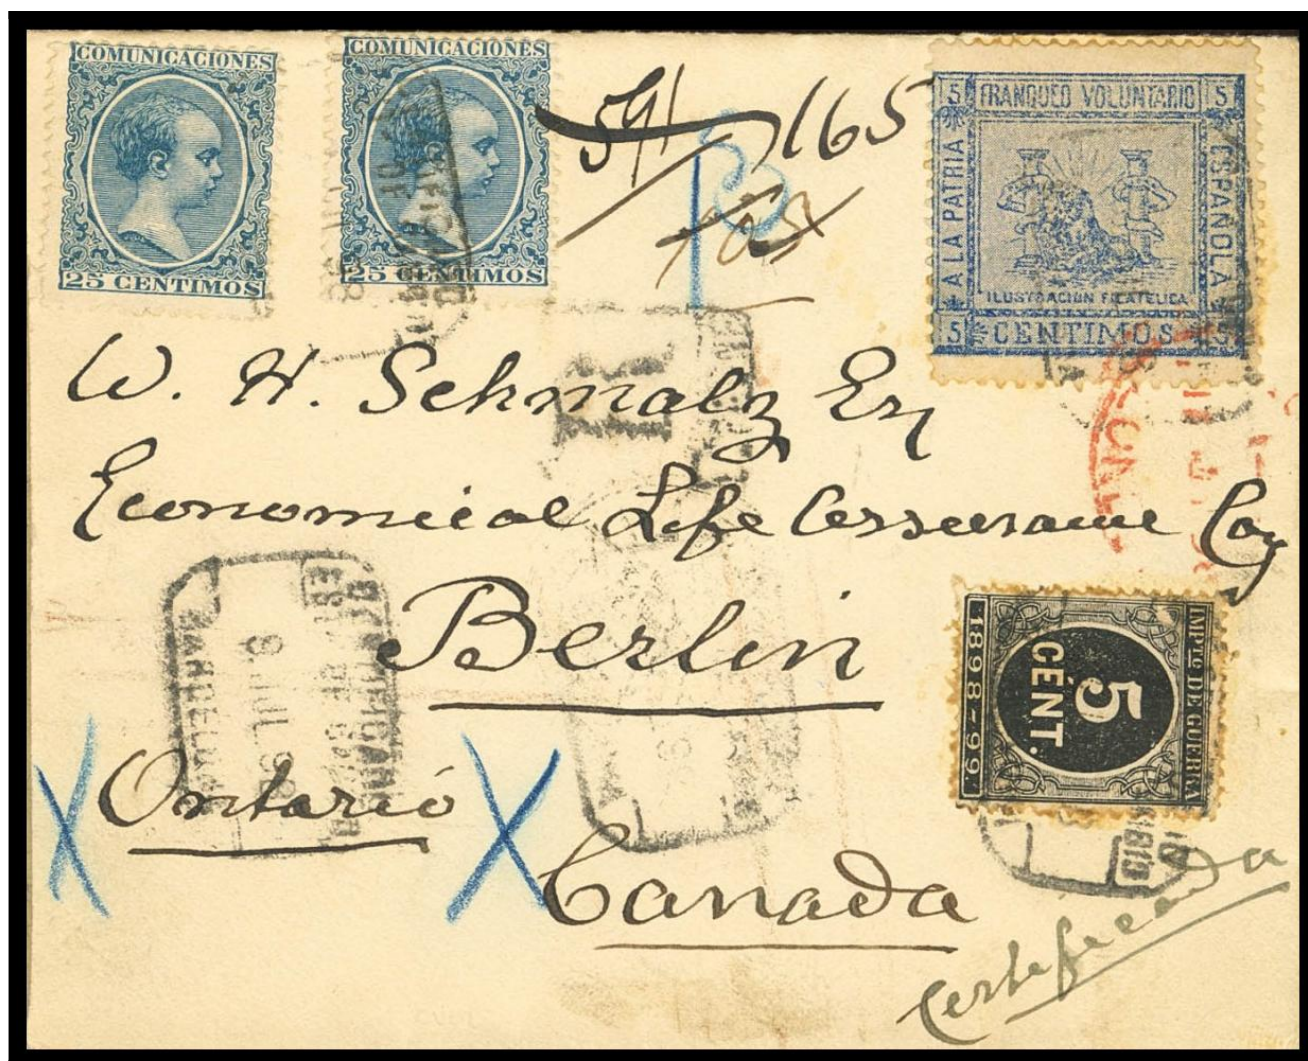 COMUNICACIONES
25 CENTIMOS
COMUNICACIONES
25 CENTIMOS
591
165
103
5 FRANQUEO VOLUNTARIO 5
A LA PATRIA
ESPAÑOLA
ILUSTRACIÓN FILATÉLICA
5 CENTIMOS 5
W. H. Schmalz Esq
Economical Life Assurance Coy
Berlin
Ontario
Canada
IMPTO DE GUERRA
5
CÉNT.
1898-99.
8. JUL. 98
R
Certificada